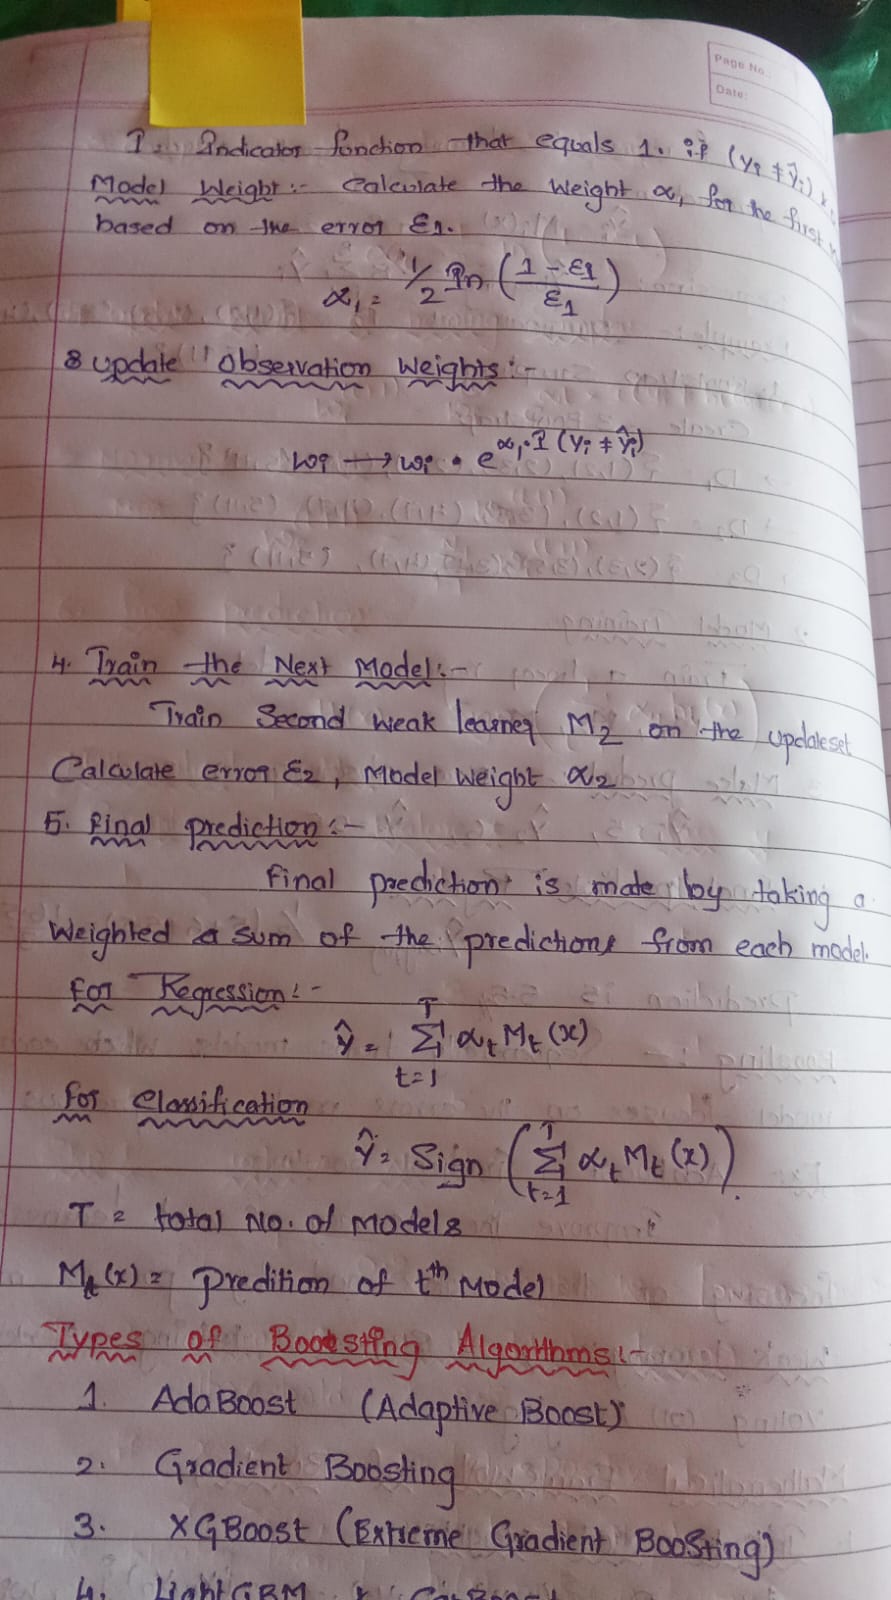 Page No.:
Date:
I = Indicator function that equals 1. if (yi ≠ ŷi)
Model Weight :- Calculate the weight α1 for the first
based on the error ε1.
α1 = 1/2 ln (1 - ε1 / ε1)
8 update Observation Weights :-
wi → wi · e^α1·I (yi ≠ ŷi)
4. Train the Next Model :-
Train Second weak learner M2 on the updateset
Calculate error ε2, Model weight α2
5. final prediction :-
final prediction is made by taking a
Weighted a sum of the predictions from each model.
for Regression :-
ŷ = Σ_{t=1}^{T} αt Mt (x)
for classification
Ŷ = Sign (Σ_{t=1}^{T} αt Mt (x)).
T = total No. of models
Mt (x) = Predition of tth Model
Types of Boosting Algorithms :-
1. AdaBoost (Adaptive Boost)
2. Gradient Boosting
3. XGBoost (Extreme Gradient Boosting)
4. LightGBM